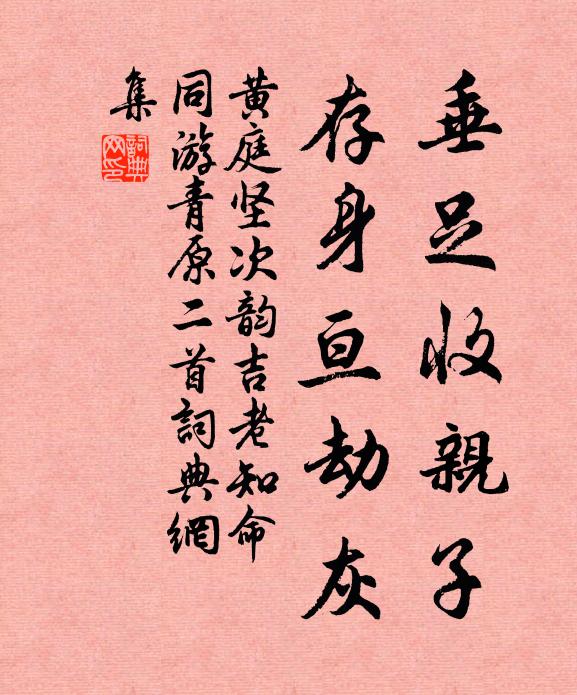 垂足收親子
存身亘劫灰
黄庭坚次韵吉老知命
同游青原二首詞典網
集
詞典網印